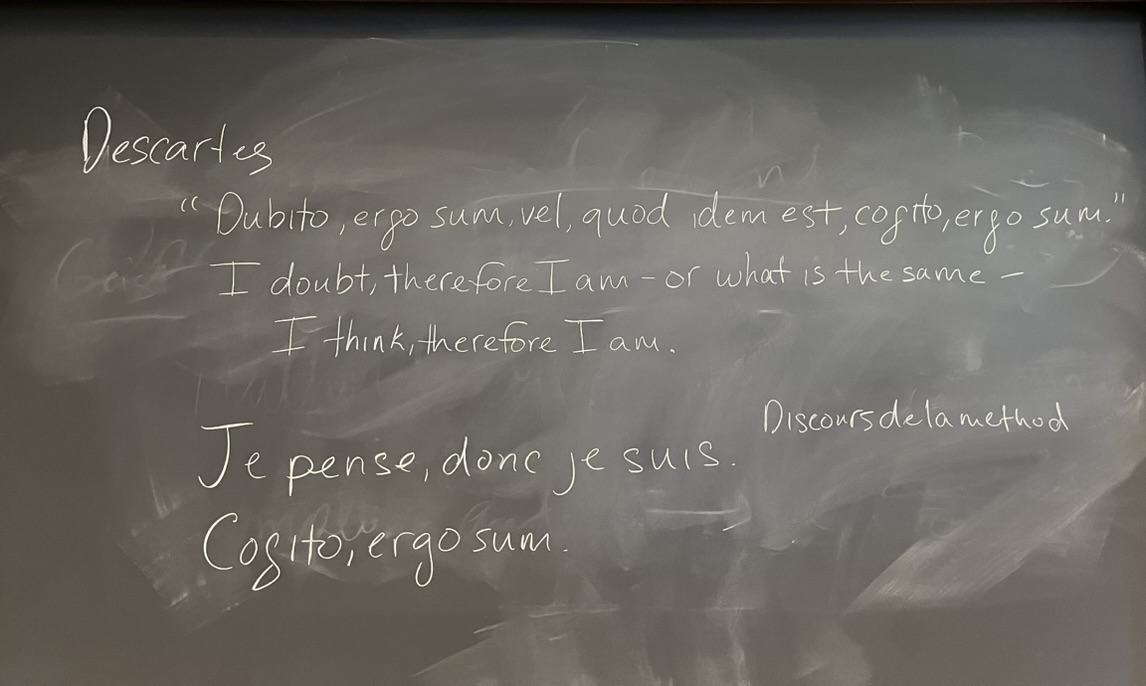 Descartes
"Dubito, ergo sum, vel, quod idem est, cogito, ergo sum."
I doubt, therefore I am - or what is the same -
I think, therefore I am.
Discours de la method
Je pense, donc je suis.
Cogito, ergo sum.